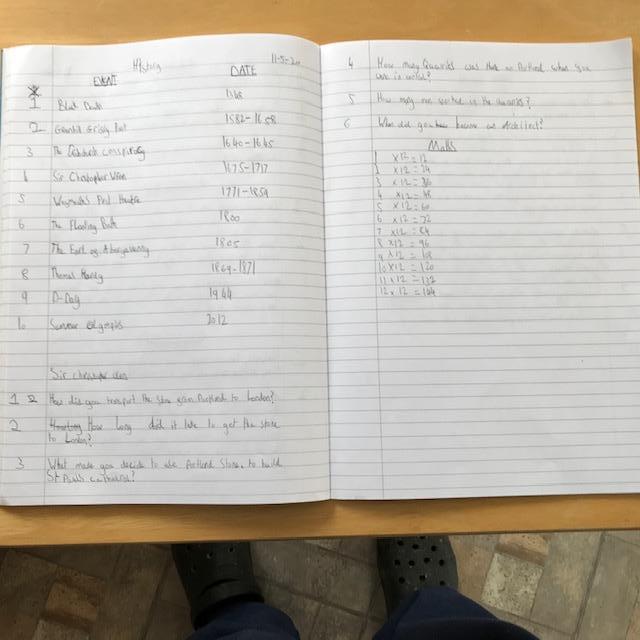 History 11-5-20
EVENT DATE
1 Black Death
2 1582-1658
3 The 1640-1645
4 Sir Christopher Wren 1675-1717
5 Weymouth's First Theatre 1771-1859
6 The Floating 1800
7 The Earl of Abergavenny 1805
8 Thomas Hardy 1869-1871
9 D-Day 1944
10 Summer 2012
Sir christopher wren
1 How did you transport the stone from Portland to London?
2 How long did it take to get the stone
to London?
3 What made you decide to use Portland Stone, to build
St Pauls
4 How many Quarries was there on Portland when you
5 How many men worked in the quarries?
6 When did you become an architect?
Maths
1 x 12 = 12
2 x 12 = 24
3 x 12 = 36
4 x 12 = 48
5 x 12 = 60
6 x 12 = 72
7 x 12 = 84
8 x 12 = 96
9 x 12 = 108
10 x 12 = 120
11 x 12 = 132
12 x 12 = 144